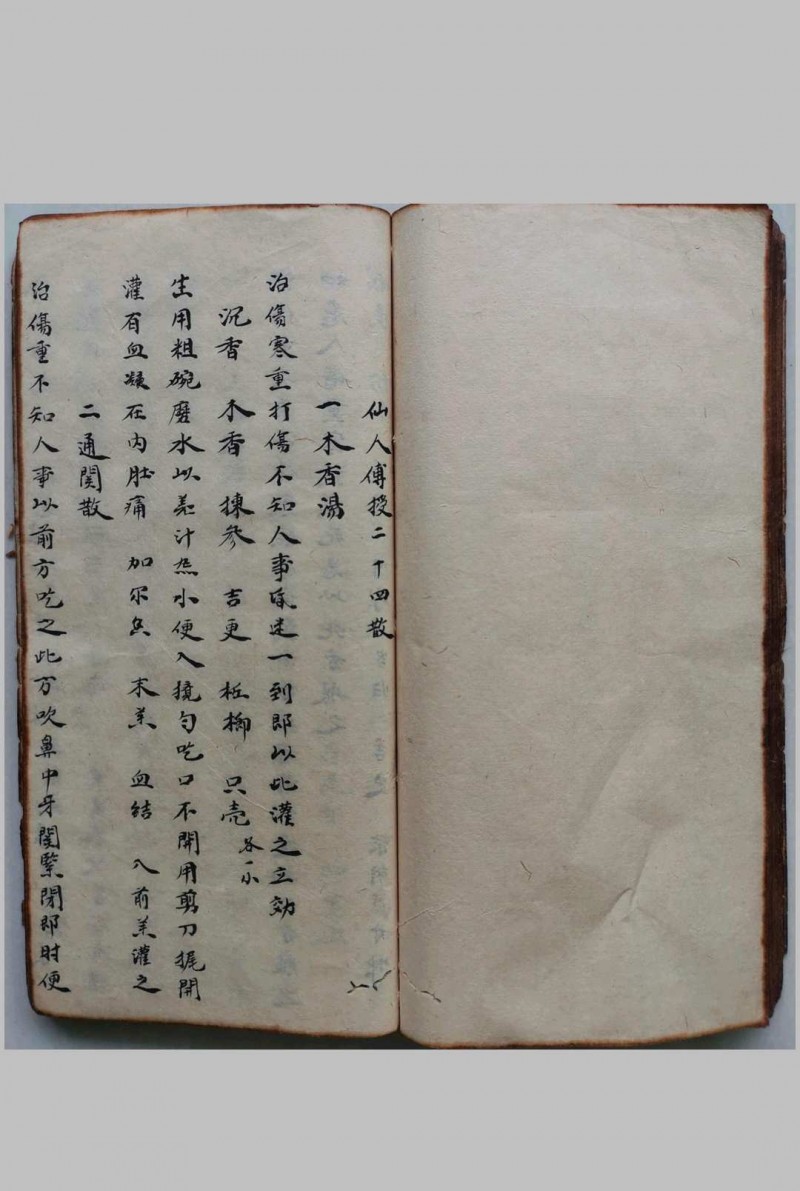 仙人傅授二十四散
一木香湯
治傷寒重打傷不知人事昏迷一到即以此灌之立効
沉香 木香 揀參 吉更 梹榔 只壳 各一小
生用粗碗磨水以羌汁炁小便入撓匀吃口不開用剪刀挀開
灌有血凝在內肚痛 加尔 末羔 血結 入前羔灌之
二通関散
治傷重不知人事以前方吃之此方吹鼻中牙関緊閉即时便